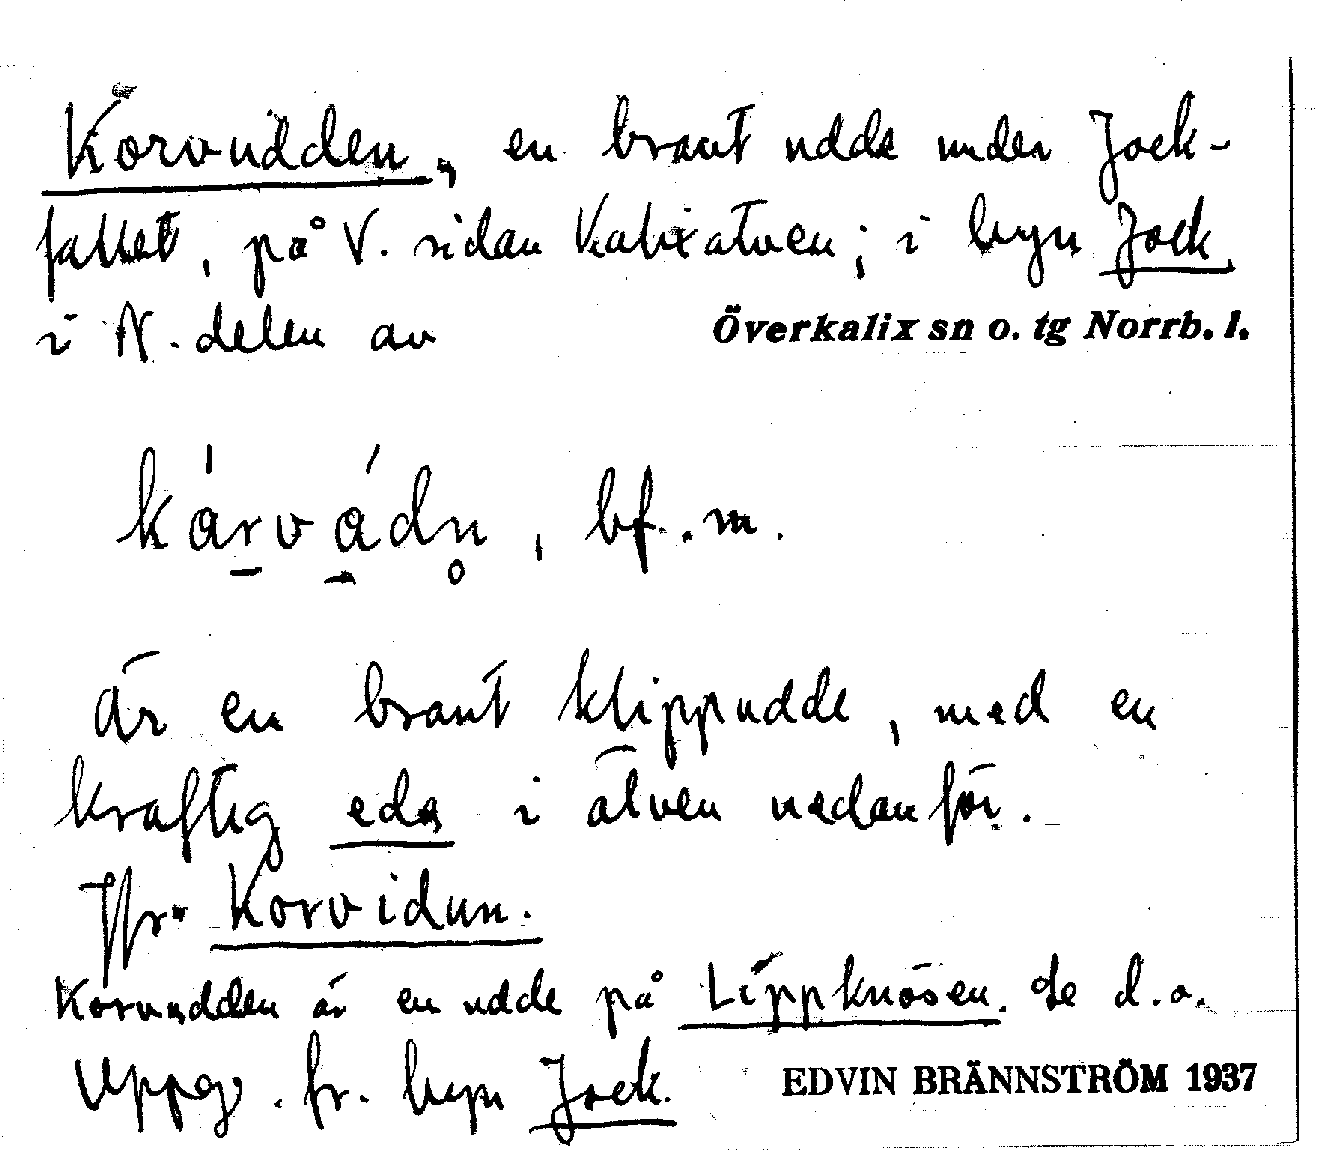 Korvudden, en brant udde under Jock-
fallet, på V. sidan Kalixälven; i byn Jock
i N. delen av Överkalix sn o. tg Norrb. l.
kárvádn̥, bf. m.
är en brant klippudde, med en
kraftig eda i älven nedanför.
Jfr. Korvidun.
Korvudden är en udde på Lippknösen. Se d.o.
Uppg. fr. byn Jock. EDVIN BRÄNNSTRÖM 1937